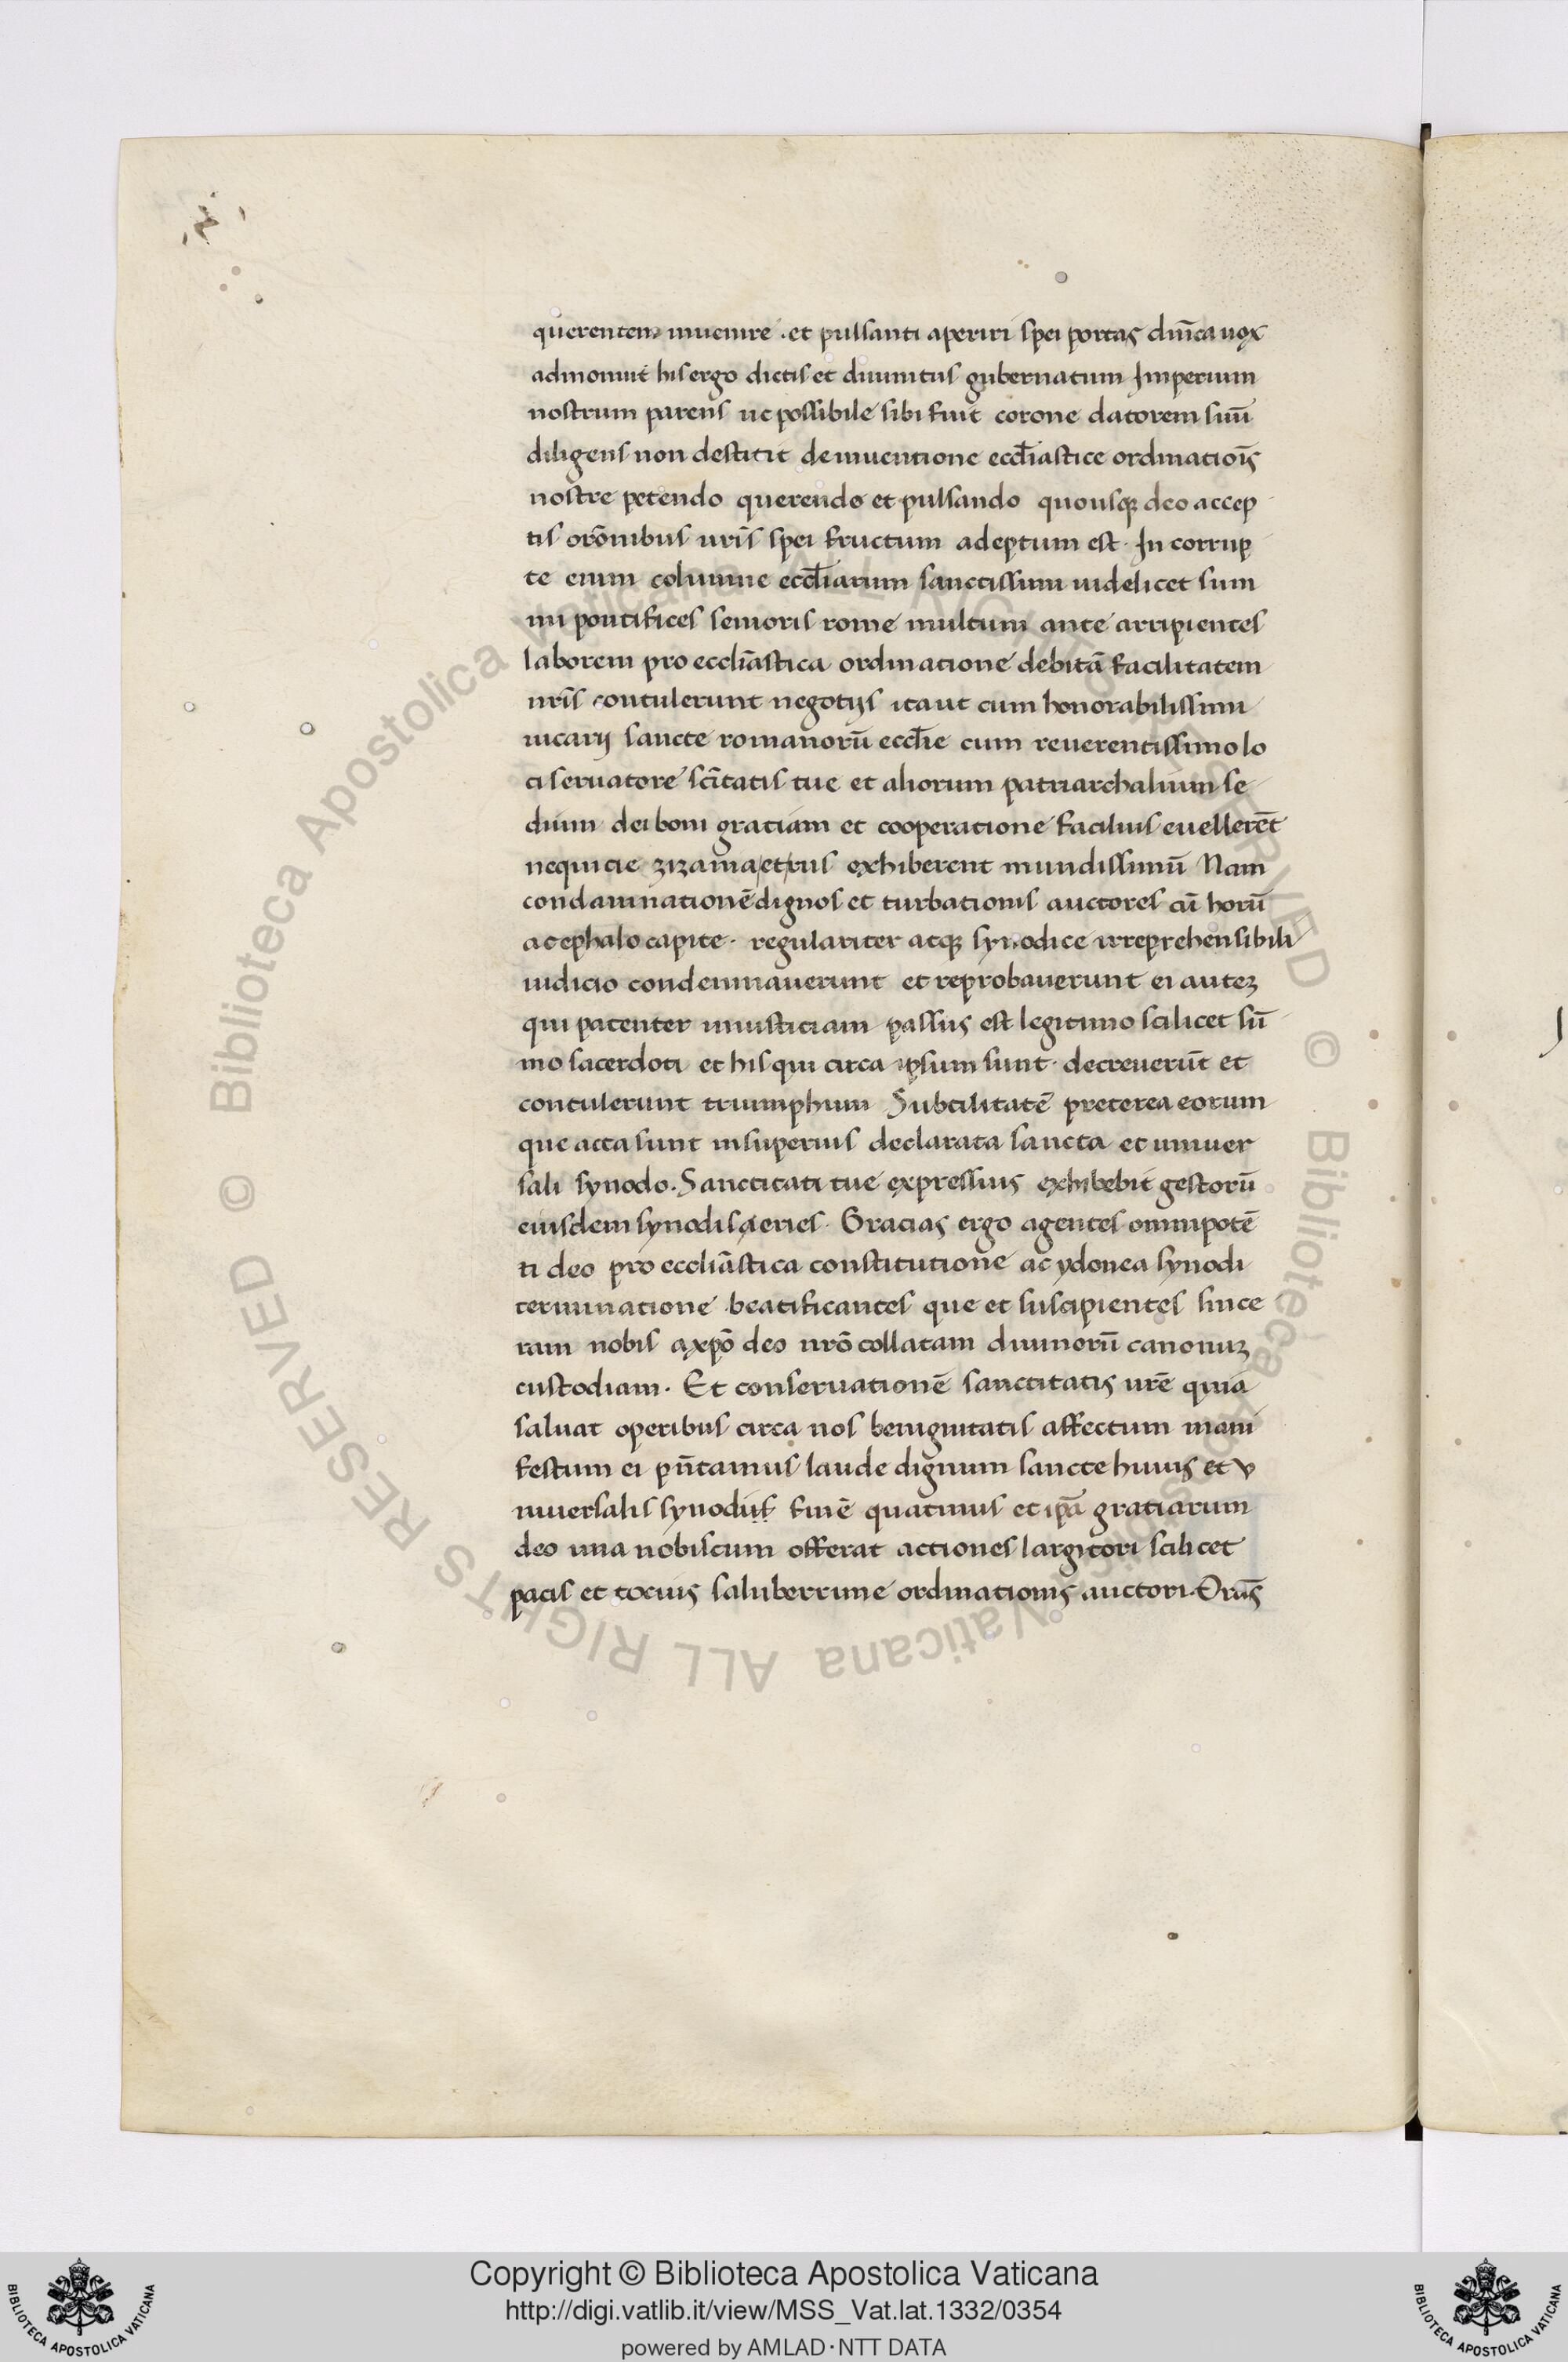 querentem inuenire . et pulsanti aperiri spei portas dnĩca uox
admonuit his ergo dictis et diuinitus gubernatum Imperium
nostrum parens ut possibile sibi fuit corone datorem suũ
diligens non destitit de inuentione eccl̃iastice ordinatiõis
nostre petendo querendo et pulsando quousqꝫ deo accep
tis orõnibus uris̃ spei fructum adeptum est · In corrup
te enim columne eccl̃iarum sanctissimi uidelicet sum
mi pontifices senioris rome multum ante arripientes
laborem pro eccliãstica ordinatione debitã facilitatem
nris̃ contulerunt negotijs itaut cum honorabilissimi
uicarij sancte romanorũ eccl̃ie cum reuerentissimo lo
ci seruatore sc̃itatis tue et aliorum patriarchalium se
dium dei boni gratiam et cooperatione facilius euellerẽt
nequicie zizania et rus exhiberent mundissimũ Nam
condamnationẽ dignos et turbationis auctores cũ horũ
acephalo capite · regulariter atqꝫ synodice irreprehensibili
iudicio condemnauerunt et reprobauerunt ei auteꝫ
qui patenter iniusticiam passus est legitimo scilicet sũ
mo sacerdoti et his qui circa ipsum sunt · decreuerũt et
contulerunt triumphum Subtilitatẽ preterea eorum
que acta sunt insuperius declarata sancta et uniuer
sali synodo . Sanctitati tue expressius exhibebit gestorũ
eiusdem synodi series · Gracias ergo agentes omnipotẽ
ti deo pro eccliãstica constitutione ac ydonea synodi
terminatione beatificantes que et suscipientes since
ram nobis a xpõ deo nrõ collatam diuinorũ canonuꝫ
custodiam · Et conseruationẽ sanctitatis urẽ quia
saluat operibus circa nos benignitatis affectum mani
festum ei pñtamus laude dignum sancte huius et v
niuersalis synodus finẽ quatinus et ip̃a gratiarum
deo una nobiscum offerat actiones largitori scilicet
pacis et tocius saluberrime ordinationis auctori · Oraš
Copyright © Biblioteca Apostolica Vaticana
http://digi.vatlib.it/view/MSS_Vat.lat.1332/0354
powered by AMLAD·NTT DATA
BIBLIOTECA APOSTOLICA VATICANA
BIBLIOTECA APOSTOLICA VATICANA
© Biblioteca Apostolica Vaticana ALL RIGHTS RESERVED
© Biblioteca Apostolica Vaticana ALL RIGHTS RESERVED